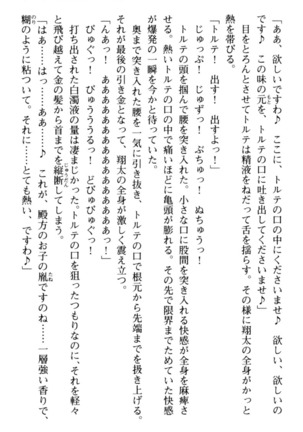 「ああ、欲しいですわ♪　ここに、トルテの口の中にくださいませ♪　欲しい、欲しいですわ♪　この味の元を、トルテの口に吐き出してくださいませ♪」
　目をとろんとさせてトルテは精液をねだって舌を揺らす。その様に翔太の全身がかっと熱を帯びる。
「トルテ！　出す！　出すよっ！」
　じゅっぷ！　じゅずっ！　ぶちゅっ！　ぬちゅうっ！
　トルテの頭を掴んで腰を突き入れた。小さな口に股間を突き入れる快感が全身を麻痺させる。熱いトルテの口の中で痛いほどに亀頭が膨れる。その先で限界までためていた快感が爆発の一瞬を今かと待っていた。
　奥まで突き入れた腰を一気に引き抜き、トルテの口で根元から先端までを扱き上げる。それが最後の引き金となって、翔太の全身が激しく震え立つ。
「んあっ！　ああああああああああああああああああああっ！」
　びゅぐっ！　びゅうううるっ！　どびゅびゅぐっ！
　打ち出された白濁液の量は凄まじかった。トルテの口を狙ったつもりなのに、それを軽々と飛び越えて金の髪から首までを縦断してしまう。
「はぁ……はっ……あぁ……♪　これが、殿方のお子の瓶ですのね……一層強い香りで、糊のように粘ついて。それに……とても熱い、ですわ♪」